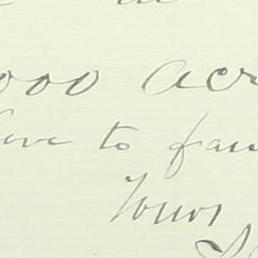 000 acr
ve to fam
Yours